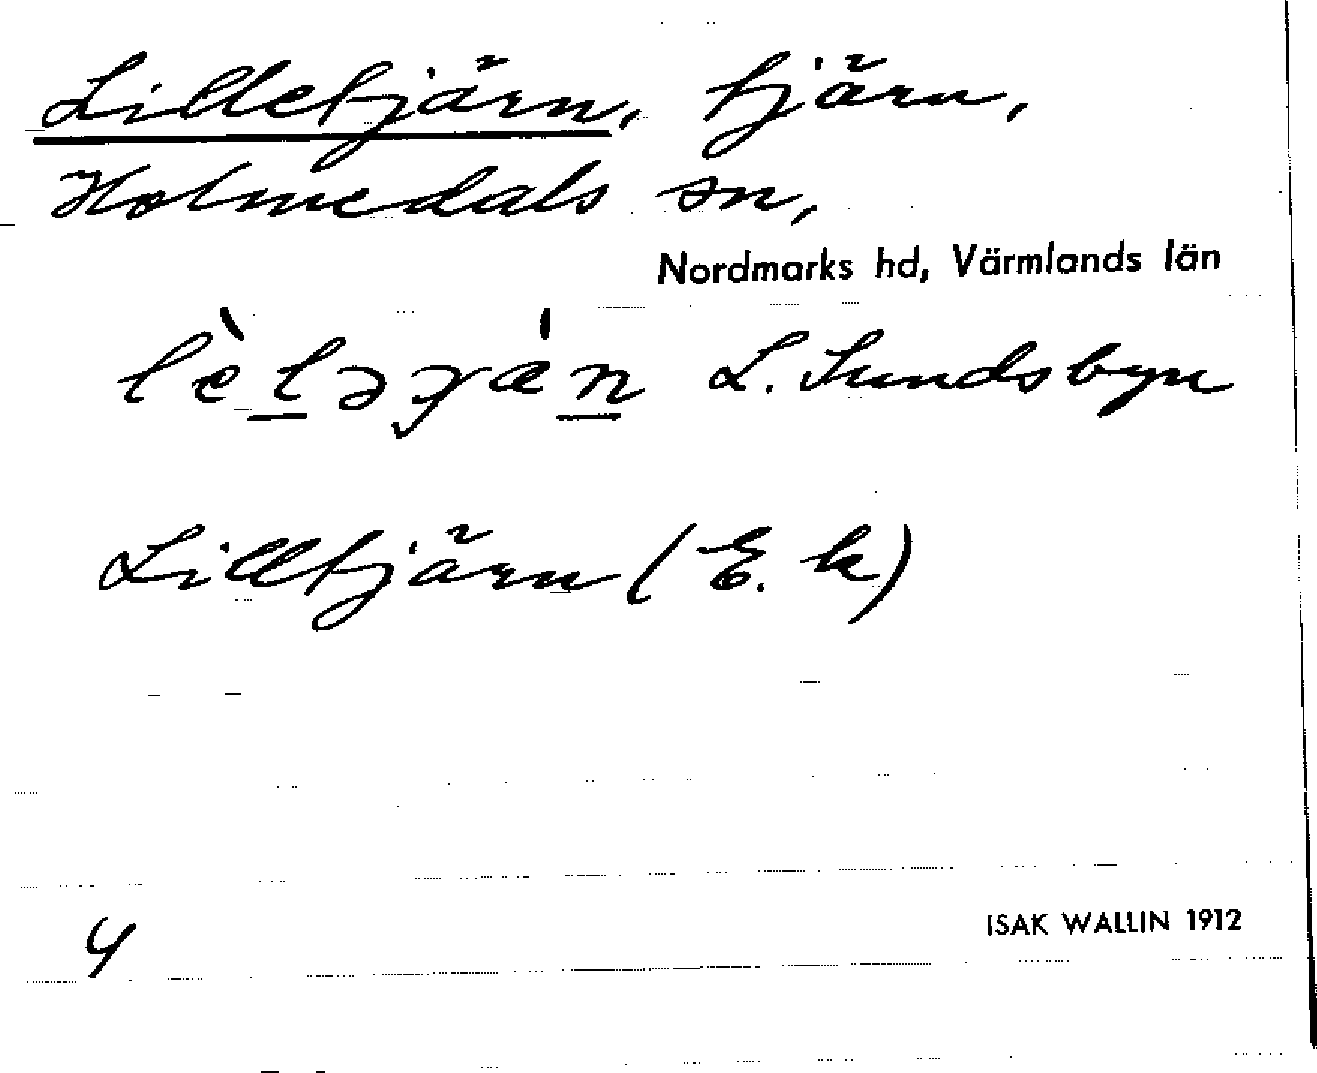 Lilletjärn, tjärn,
Holmedals sn,
Nordmarks hd, Värmlands län
L. Sundsbyn
Lilltjärn (E. k)
4
ISAK WALLIN 1912